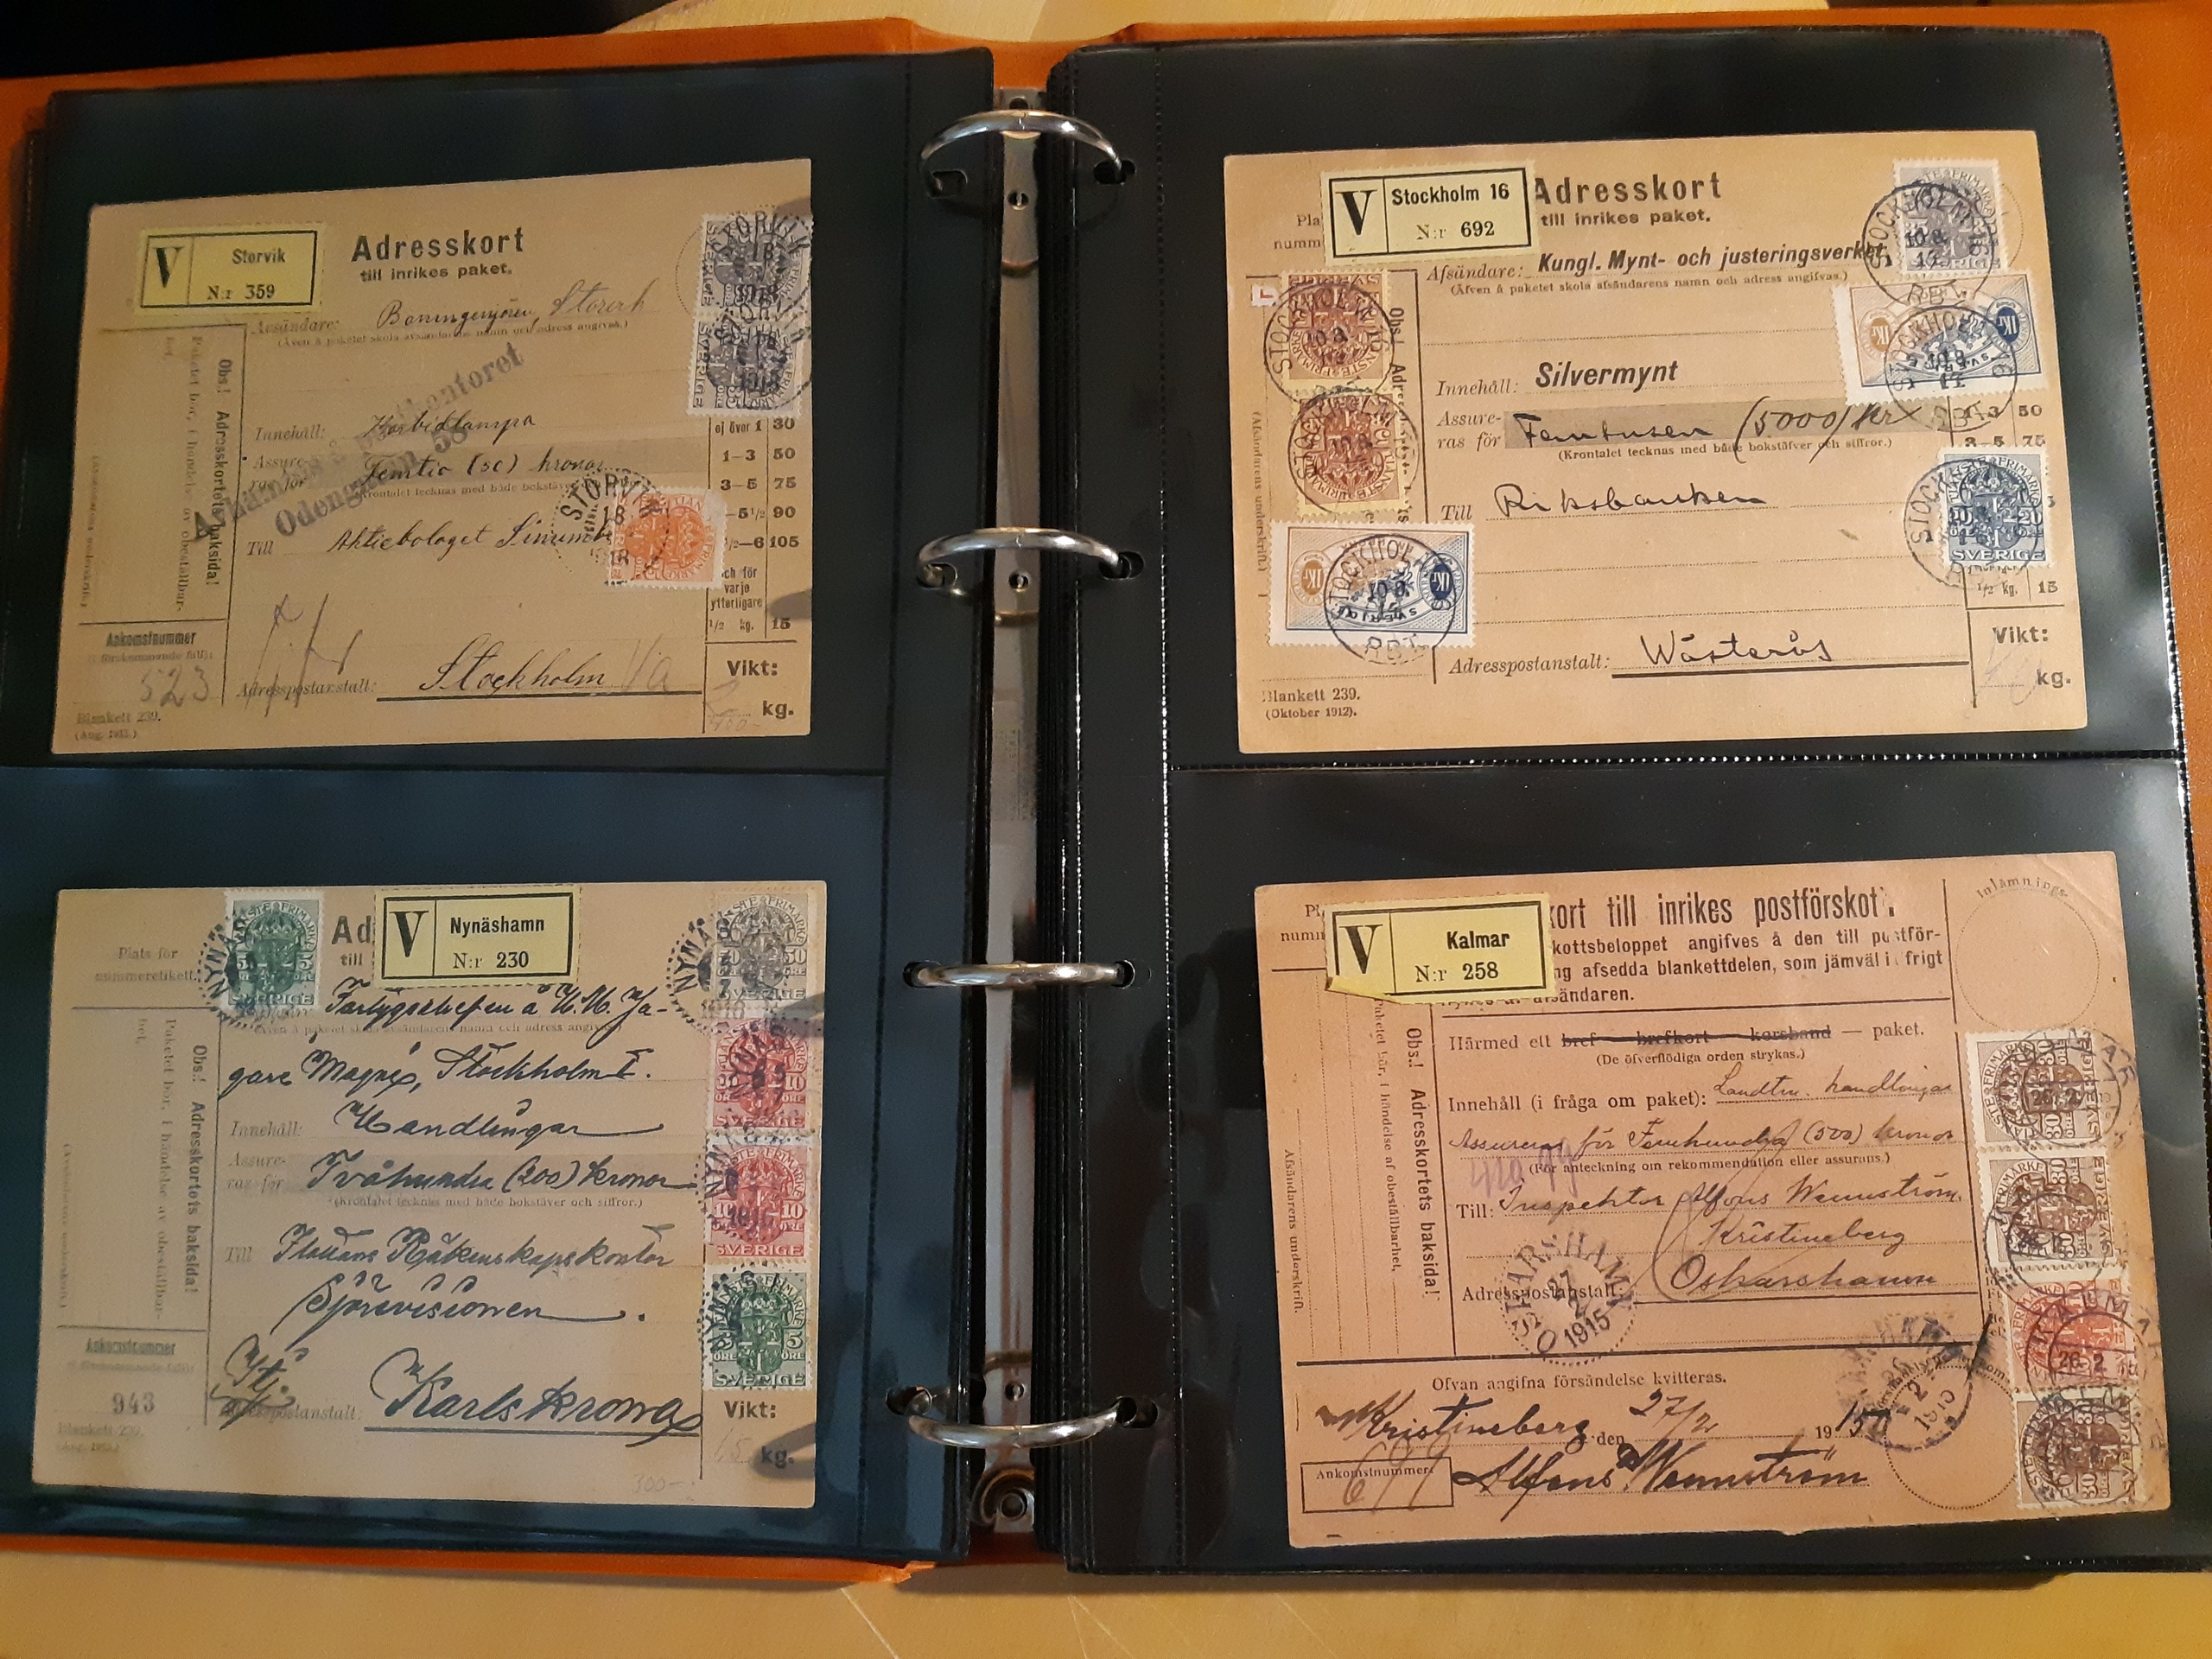 V
Storvik
N:r 359
Adresskort
till inrikes paket.
Avsändare:
(Även å paketet skola avsändarens namn och adress angivas.)
Obs.! Adresskortets baksida!
Paketet bör, i händelse av obeställbar-
het,
(Avsändarens underskrift.)
Odengatan 58
Innehåll: Karbidlampa
Assure-
ras för Femtio (50) kronor
(Krontalet tecknas med både bokstäver och siffror.)
Till Aktiebolaget
STORVIK
1918
ej över 1 30
1-3 50
3-5 75
5½ 90
½-6 105
och för
varje
ytterligare
1/2 kg. 15
Ankomstnummer
(i förekommande fall):
523
Adresspostanstalt: Stockholm
Vikt:
kg.
Blankett 239.
V
Stockholm 16
N:r 692
Adresskort
till inrikes paket.
Afsändare: Kungl. Mynt- och justeringsverket
(Äfven å paketet skola afsändarens namn och adress angifvas.)
Obs.! Adres
(Afsändarens underskrift.)
Innehåll: Silvermynt
Assure-
ras för Femtusen (5000) Kr
(Krontalet tecknas med både bokstäfver och siffror.)
Till Riksbanken
1-3 50
3-5 75
1/2 kg. 15
STOCKHOLM 16
RBT.
1Kr
20
SVERIGE
Adresspostanstalt: Wästerås
Vikt:
kg.
Blankett 239.
(Oktober 1912).
V
Nynäshamn
N:r 230
Ad
till
Plats för
nummeretikett.
Fartygschefen å H.M. Ja-
(Även å paketet skola avsändarens namn och adress angivas.)
gare Magne, Stockholm I.
Innehåll: Handlingar
Assure-
ras för Tvåhundra (200) kronor
(Krontalet tecknas med både bokstäver och siffror.)
Till Flottans Räkenskapskontor
Sjörevisionen
Obs.! Adresskortets baksida!
Paketet bör, i händelse av obeställbar-
het,
(Avsändarens underskrift.)
Ankomstnummer
(i förekommande fall):
943
Adresspostanstalt: Karlskrona
Vikt:
kg.
Blankett 239.
300-
10 ÖRE
SVERIGE
5 ÖRE
SVERIGE
V
Kalmar
N:r 258
kort till inrikes postförskott.
kottsbeloppet angifves å den till postför-
ng afsedda blankettdelen, som jämväl i frigt
afsändaren.
Inlämnings-
Härmed ett bref — brefkort — korsband — paket.
(De öfverflödiga orden strykas.)
Innehåll (i fråga om paket): Landtm. handlingar
Assureras för Femhundra (500) kronor
(För anteckning om rekommendation eller assurans.)
Till: Inspektor Alfons Wennström
Kristineberg
Adresspostanstalt: Oskarshamn
Obs.! Adresskortets baksida!
Paketet bör, i händelse af obeställbarhet,
Afsändarens underskrift.
27
1915
Ofvan angifna försändelse kvitteras.
Kristineberg den 27/2 1915
Ankomstnummer:
699
Alfons Wennström